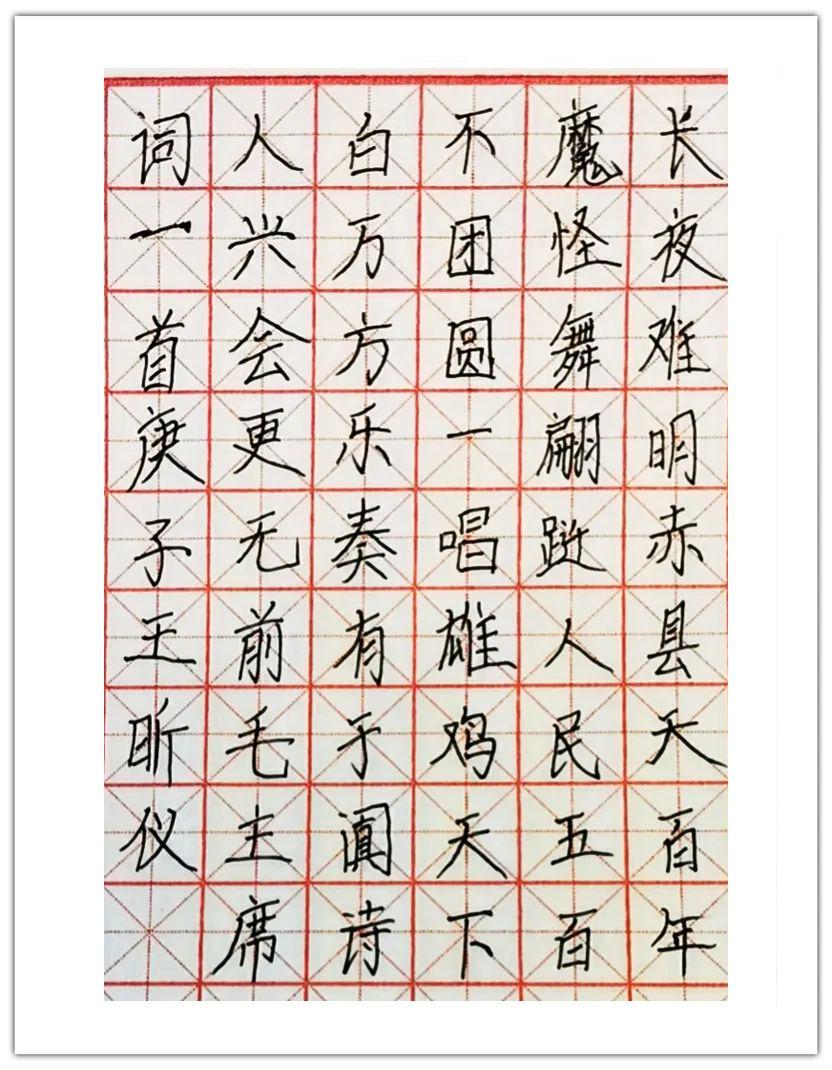 长夜难明赤县天百年
魔怪舞翩跹人民五百
不团圆一唱雄鸡天下
白万方乐奏有于阗诗
人兴会更无前毛主席
词一首庚子王昕仪